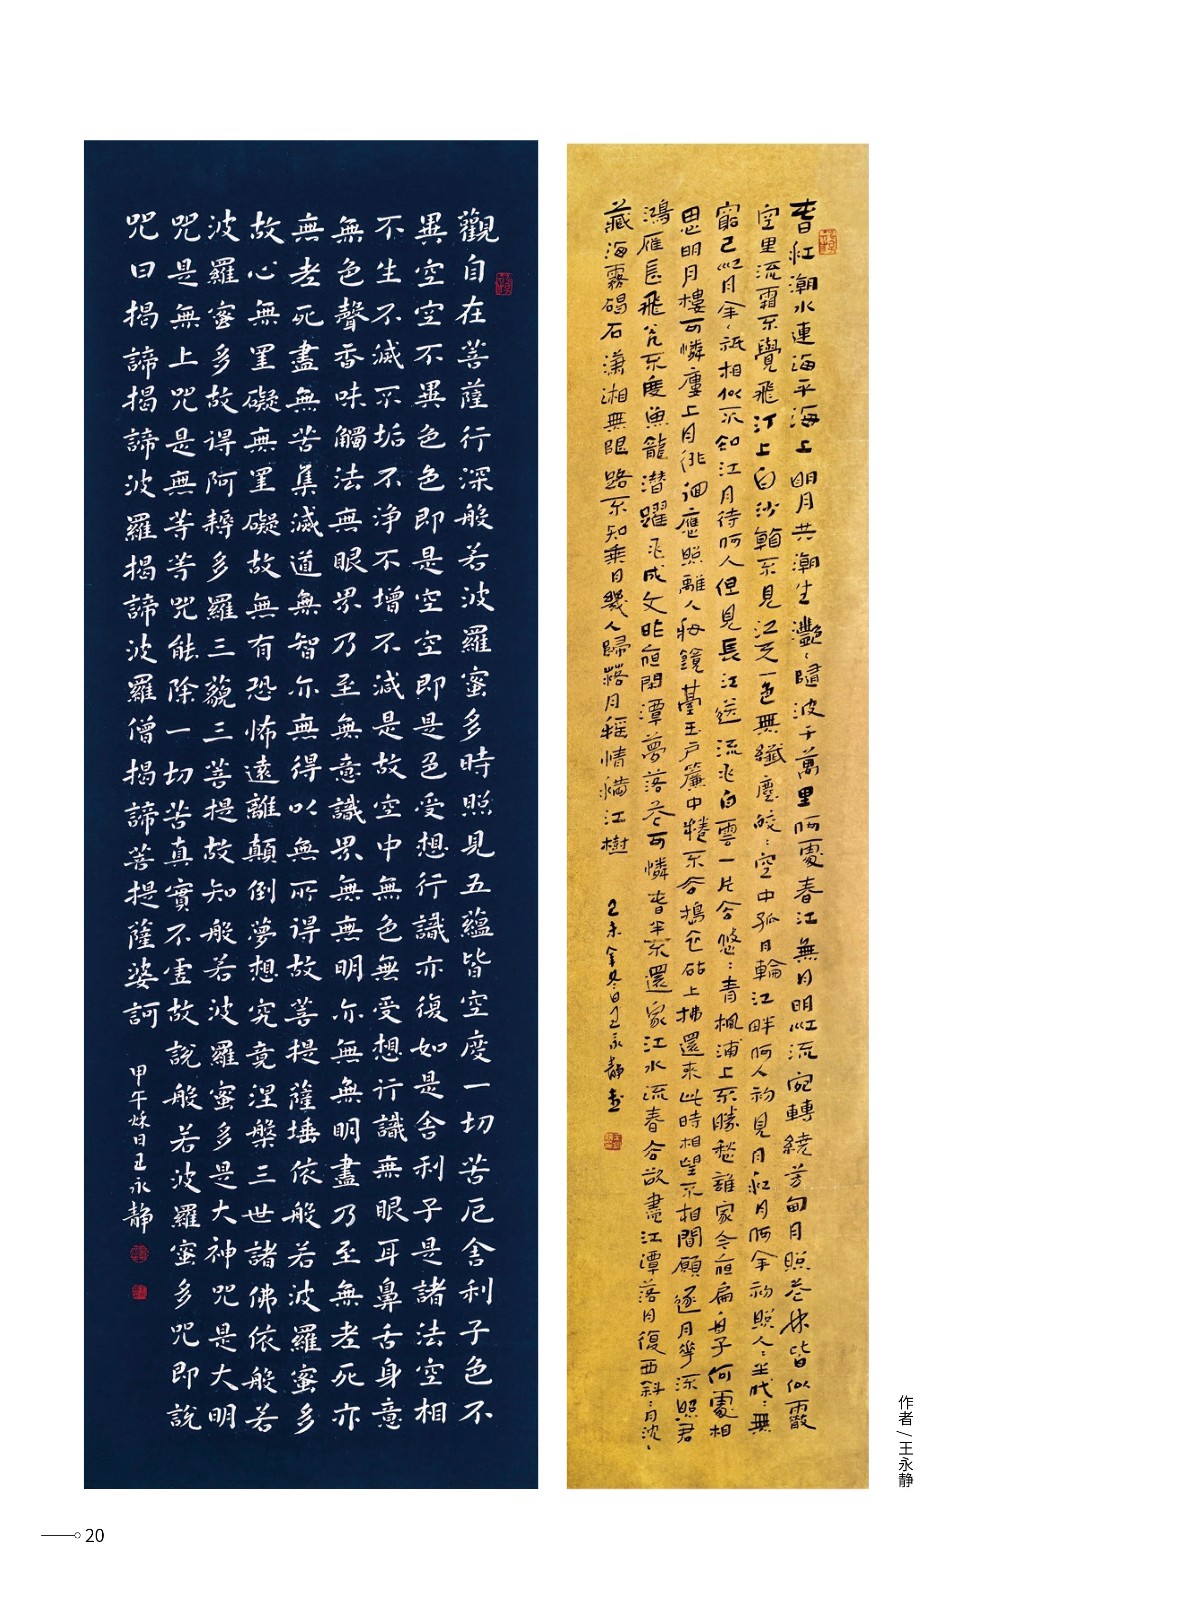 春江潮水連海平海上明月共潮生灩:隨波千萬里何處春江無月明江流宛轉繞芳甸月照花林皆似霰
空里流霜不覺飛汀上白沙看不見江天一色無纖塵皎:空中孤月輪江畔何人初見月江月何年初照人:生代:無
窮已江月年:祇相似不知江月待何人但見長江送流水白雲一片去悠:青楓浦上不勝愁誰家今夜扁舟子何處相
思明月樓可憐樓上月徘徊應照離人妝鏡臺玉戶簾中捲不去搗衣砧上拂還來此時相望不相聞願逐月華流照君
鴻雁長飛光不度魚龍潛躍水成文昨夜閑潭夢落花可憐春半不還家江水流春去欲盡江潭落月復西斜:月沈:
藏海霧碣石瀟湘無限路不知乘月幾人歸落月搖情滿江樹
乙未年冬日王永静書
觀自在菩薩行深般若波羅蜜多時照見五蘊皆空度一切苦厄舍利子色不
異空空不異色色即是空空即是色受想行識亦復如是舍利子是諸法空相
不生不滅不垢不淨不增不減是故空中無色無受想行識無眼耳鼻舌身意
無色聲香味觸法無眼界乃至無意識界無無明亦無無明盡乃至無老死亦
無老死盡無苦集滅道無智亦無得以無所得故菩提薩埵依般若波羅蜜多
故心無罣礙無罣礙故無有恐怖遠離顛倒夢想究竟涅槃三世諸佛依般若
波羅蜜多故得阿耨多羅三藐三菩提故知般若波羅蜜多是大神咒是大明
咒是無上咒是無等等咒能除一切苦真實不虛故說般若波羅蜜多咒即說
咒曰揭諦揭諦波羅揭諦波羅僧揭諦菩提薩婆訶
甲午秋日王永静
作者/王永静
20